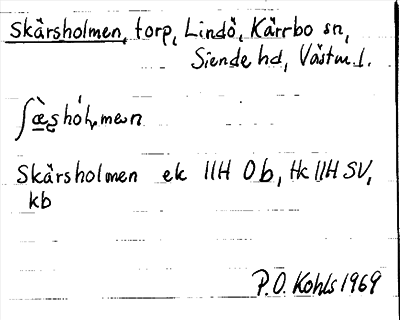 Skärsholmen, torp, Lindö, Kärrbo sn,
Siende hd, Västm. l.
Skärsholmen ek 11H 0b, Hk 11H SV,
kb
P.O. Kohls 1969